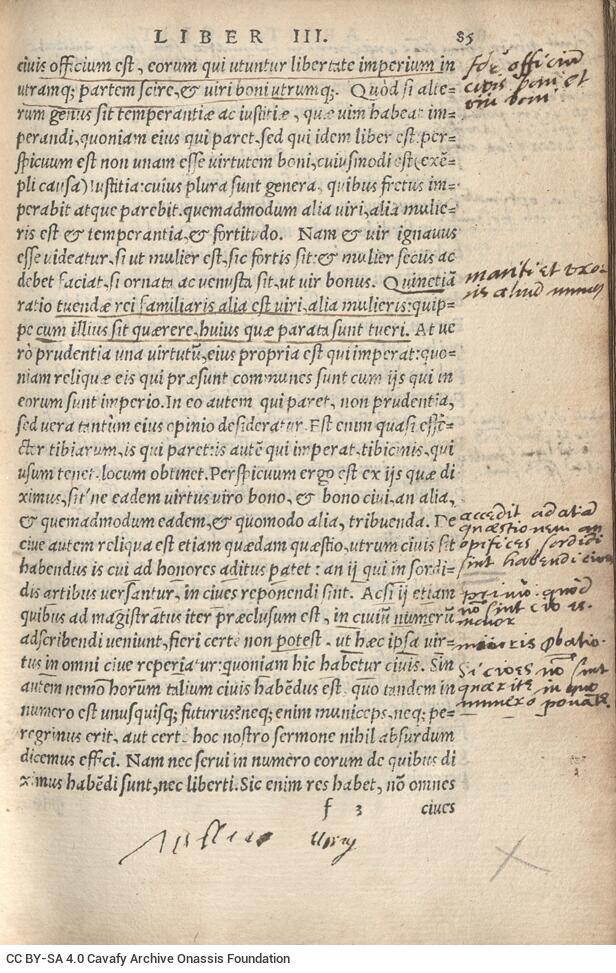 LIBER III. 85
ciuis officium est, eorum qui utuntur libertate imperium in
utramq; partem scire, & uiri boni utrumq;. Quòd si alie-
rum genus sit temperantiæ ac iustitiæ, quæ uim habeat im-
perandi, quoniam eius qui paret, sed qui idem liber est: per-
spicuum est non unam esse uirtutem boni, cuiusmodi est (exē-
pli causa) iustitia: cuius plura sunt genera, quibus fretus im-
perabit atque parebit. quemadmodum alia uiri, alia mulie-
ris est & temperantia, & fortitudo. Nam & uir ignauus
esse uideatur, si ut mulier est, sic fortis sit: & mulier secus ac
debet faciat, si ornata ac uenusta sit, ut uir bonus. Quinetiā
ratio tuendæ rei familiaris alia est uiri, alia mulieris: quip-
pe cum illius sit quærere, huius quæ parata sunt tueri. At ue
rò prudentia una uirtutū, eius propria est qui imperat: quo-
niam reliquæ eis qui præsunt communes sunt cum ijs qui in
eorum sunt imperio. In eo autem qui paret, non prudentia,
sed uera tantum eius opinio desideratur. Est enim quasi effe-
ctor tibiarum, is qui paret: is autē qui imperat, tibicinis, qui
usum tenet, locum obtinet. Perspicuum ergo est ex ijs quæ di
ximus, sit'ne eadem uirtus uiro bono, & bono ciui, an alia,
& quemadmodum eadem, & quomodo alia, tribuenda. De
ciue autem reliqua est etiam quædam quæstio, utrum ciuis sit
habendus is cui ad honores aditus patet: an ij qui in sordi-
dis artibus uersantur, in ciues reponendi sint. Ac si ij etiam
quibus ad magistratus iter præclusum est, in ciuiū numerū
adscribendi ueniunt, fieri certè non potest, ut hæc ipsa uir-
tus in omni ciue reperiatur: quoniam hic habetur ciuis. Sin
autem nemo horum talium ciuis habēdus est, quo tandem in
numero est unusquisq; futurus? neq; enim municeps, neq; pe-
regrinus erit, aut certè hoc nostro sermone nihil absurdum
dicemus effici. Nam nec serui in numero eorum de quibus di
ximus habēdi sunt, nec liberti. Sic enim res habet, nō omnes
f 3 ciues
officiū
ciuis boni et
uiri boni
mariti et uxo
ris aliud munus
accedit ad
quæstionem an
opifices sordidi
sint habendi ciues
primo quod
nō sint ciues
minoris
Si ciues nō sint
quærit in quo
numero
CC BY-SA 4.0 Cavafy Archive Onassis Foundation